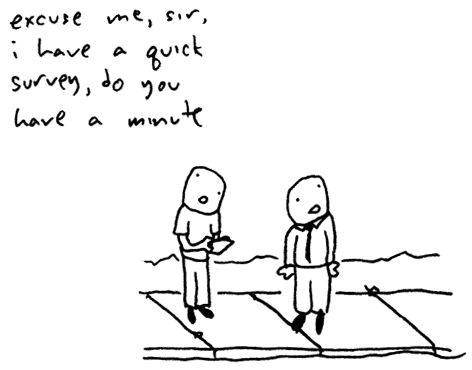 excuse me, sir,
i have a quick
survey, do you
have a minute